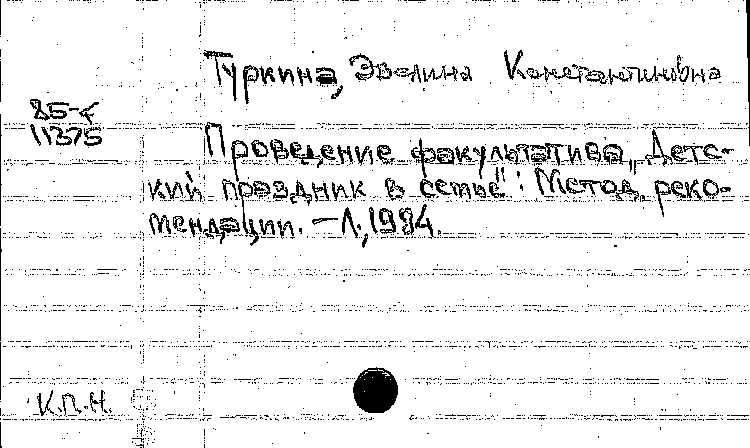 Туркина, Эвелина Константиновна
85-4
11375
Проведение факультатива „Детс-
кий праздник в семье“: Метод. реко-
мендации. — Л., 1984.
К.П.Н.